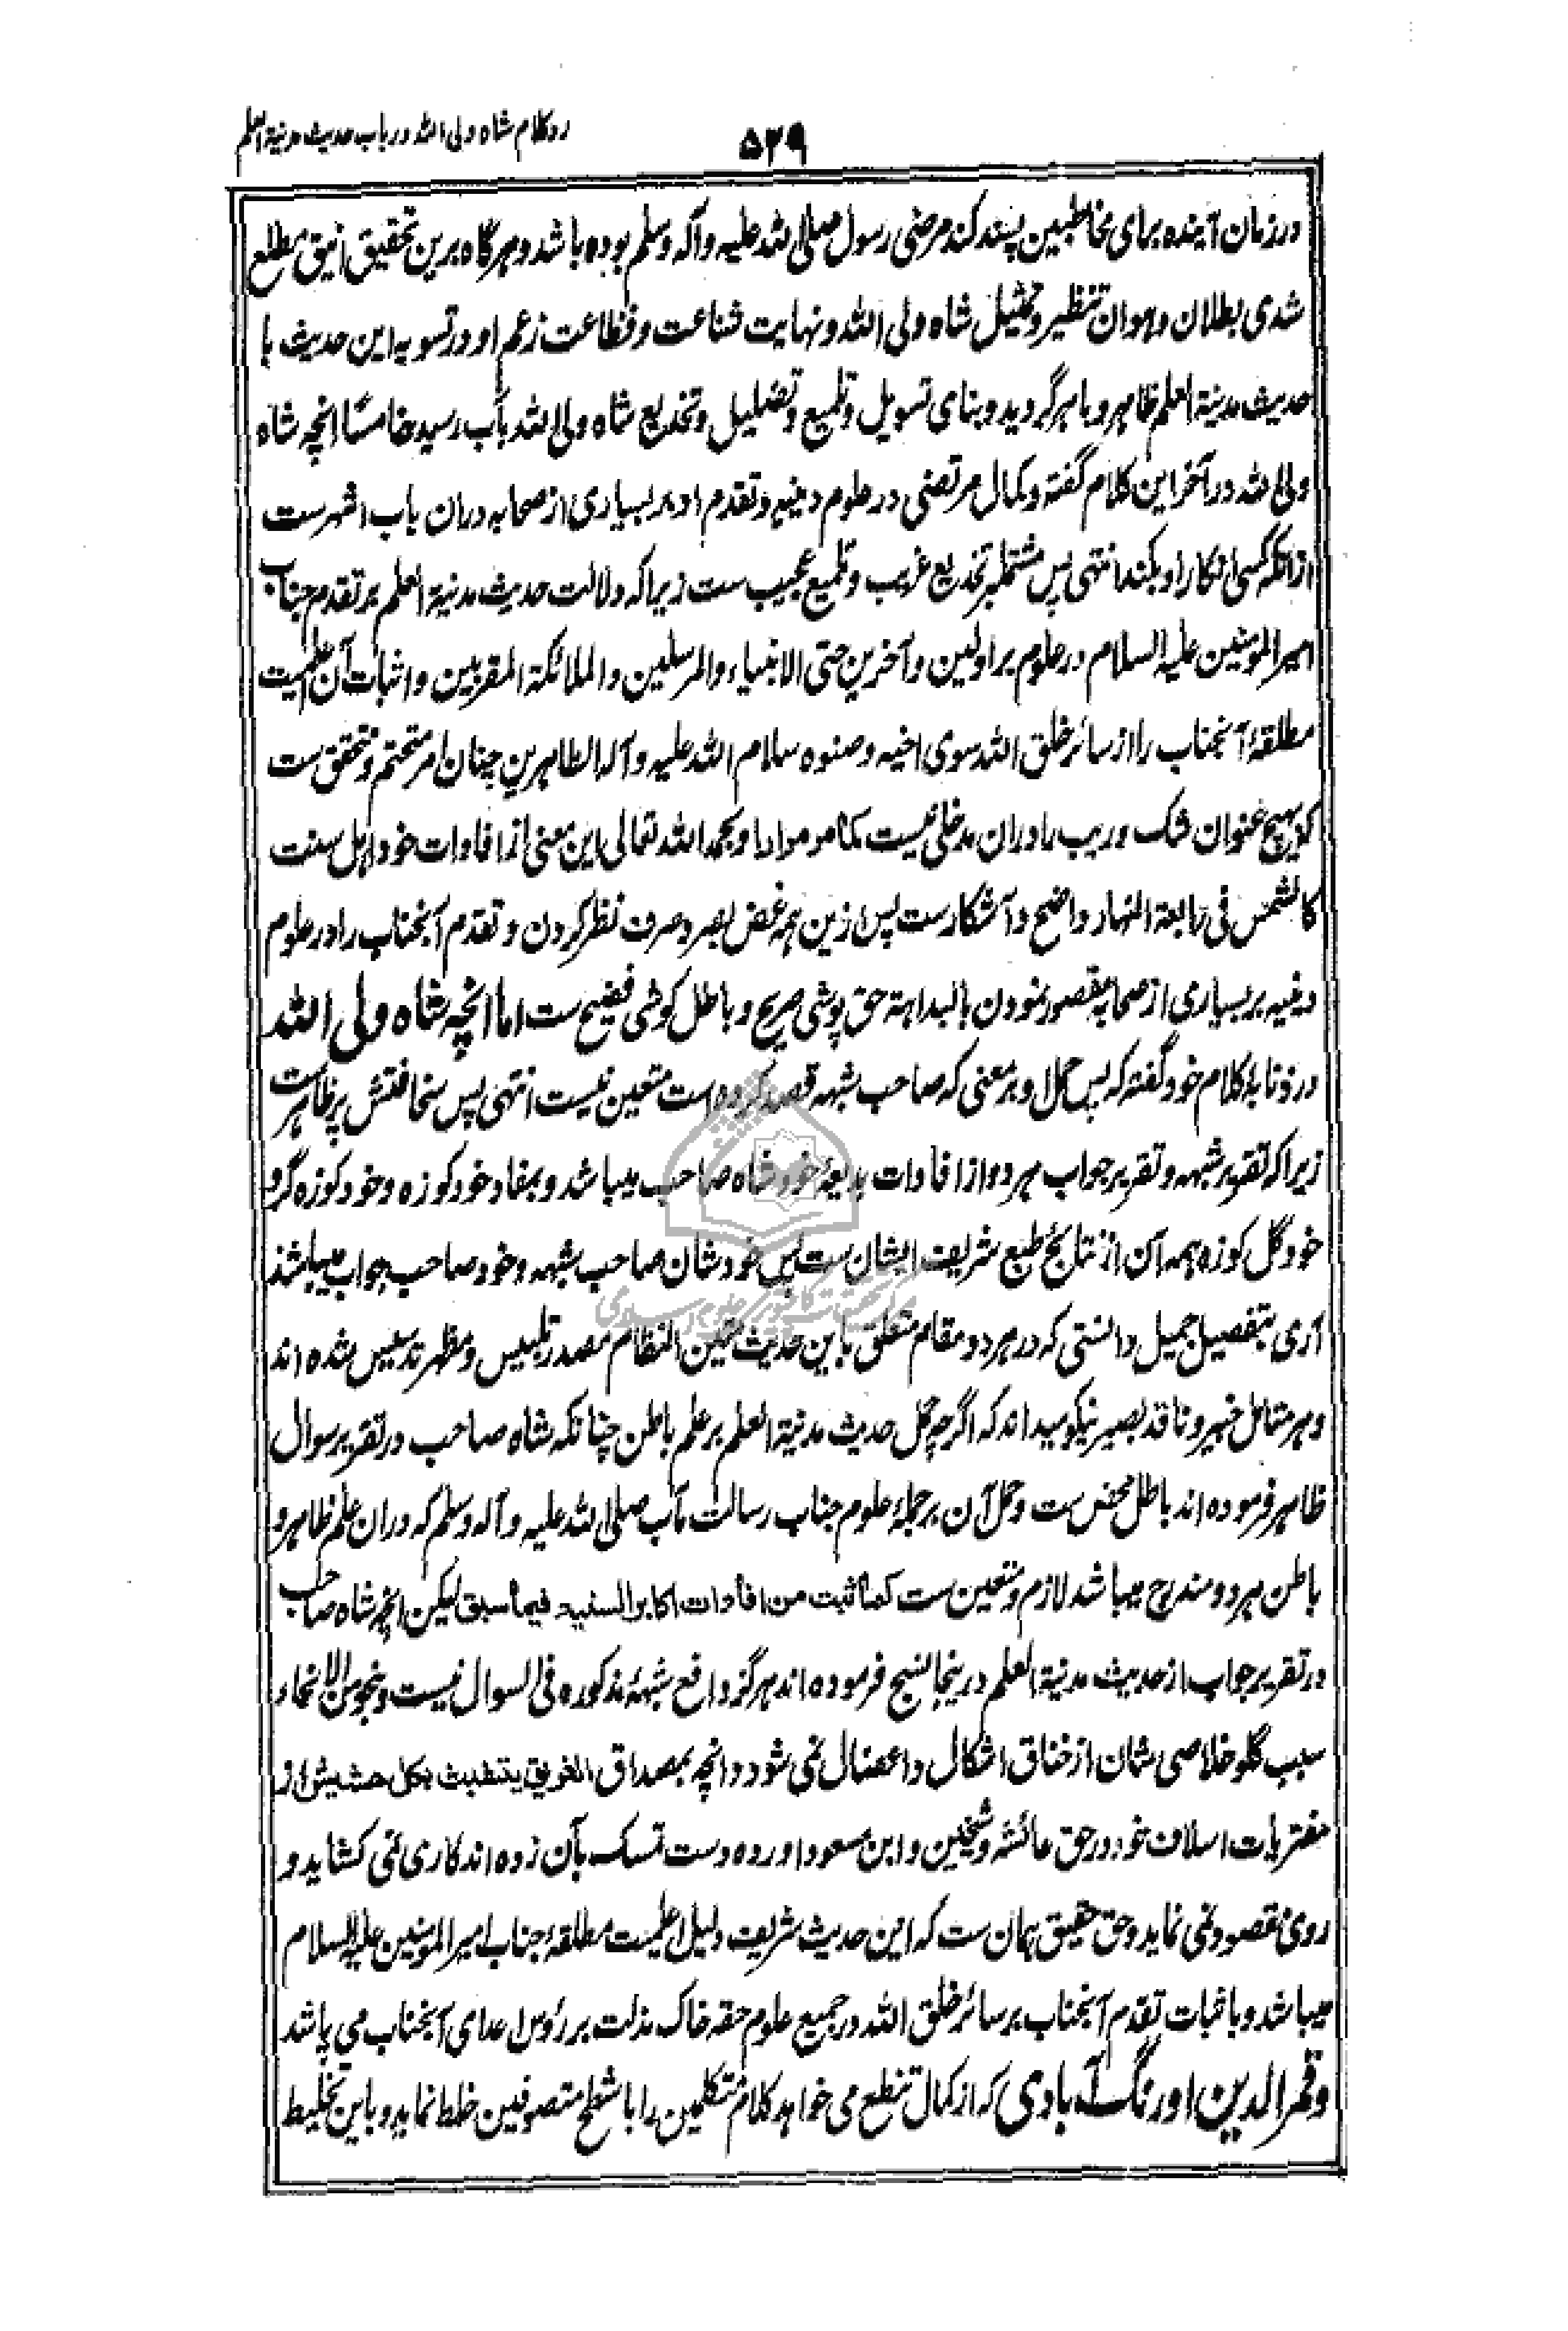 رد کلام شاه ولی الله در باب حدیث مدینة العلم
۵۲۹
در زمان آینده برای مخاطبین پسند کند مرضی رسول صلی الله علیه و آله و سلم بوده باشد و هرگاه برین تحقیق انیق مطلع
شدی بطلان و هوان تنظیر و تمثیل شاه ولی الله و نهایت شناعت و فظاعت زعم او در تسویه این حدیث با
حدیث مدینة العلم ظاهر و باهر گردید و بنای تسویل و تلمیع و تضلیل و تخدیع شاه ولی الله بآب رسید خامسًا انچه شاه
ولی الله در آخر این کلام گفته و کمال مرتضی در علوم دینیه و تقدم او بر بسیاری از صحابه دران باب اشهرست
ازانکه کسی انکار او بکند انتهی پس مشتمل بر تخدیع غریب و تلمیع عجیب ست زیراکه دلالت حدیث مدینة العلم بر تقدم جناب
امیر المومنین علیه السلام در علوم بر اولین و آخرین حتی الانبیاء والمرسلین والملائکة المقربین و اثبات آن اعلمیت
مطلقهٔ آنجناب را از سائر خلق الله سوی اخیه و صنوه سلام الله علیه و آله الطاهرین چنان امر متحتم و متحقق ست
که بهیچ عنوان شک و ریب را دران مدخلی نیست کما مر مرارا و بحمد الله تعالی این معنی از افادات خود اهل سنت
کالشمس فی رابعة النهار واضح و آشکارست پس ازین همه غض بصر و صرف نظر کردن و تقدم آنجناب را در علوم
دینیه بر بسیاری از صحابه مقصور نمودن بالبداهة حق پوشی صریح و باطل کوشی فضیح ست اما انچه شاه ولی الله
در ذنابهٔ کلام خود گفته که پس حمل او بر معنی که صاحب شبهه قصد کرده است متعین نیست انتهی پس سخافتش پر ظاهرست
زیراکه تقریر شبهه و تقریر جواب هر دو از افادات بدیعهٔ خود شاه صاحب میباشد و بمفاد خود کوزه و خود کوزه گر و
خود گل کوزه همه آن از نتائج طبع شریف ایشان ست پس خودشان صاحب شبهه و خود صاحب جواب میباشند
آری بتفصیل جمیل دانستی که در هر دو مقام متعلق باین حدیث متین النظام مصدر تلبیس و مظهر تدلیس شده اند
و هر متامل خبیر و ناقد بصیر نیکو میداند که اگرچه حمل حدیث مدینة العلم بر علم باطن چنانکه شاه صاحب در تقریر سوال
ظاهر فرموده اند باطل محض ست و حمل آن بر جملهٔ علوم جناب رسالت مآب صلی الله علیه و آله و سلم که دران علم ظاهر و
باطن هر دو مندرج میباشد لازم و متعین ست کما ثبت من افادات اکابر السنیه فیما سبق لیکن انچه شاه صاحب
در تقریر جواب از حدیث مدینة العلم درینجا نسج فرموده اند هرگز دافع شبههٔ مذکوره فی السوال نیست و بنحو من الانحاء
سبب گلو خلاصی شان از خناق اشکال و اعضال نمی شود و انچه بمصداق الغریق یتشبث بکل حشیش از
مفتریات اسلاف خود در حق عائشه و شیخین و ابن مسعود آورده دست تمسک بآن زده اند کاری نمی کشاید و
روی مقصود نمی نماید و حق حقیق همان ست که این حدیث شریف دلیل اعلمیت مطلقهٔ جناب امیر المومنین علیه السلام
میباشد و باثبات تقدم آنجناب بر سائر خلق الله در جمیع علوم حقه خاک مذلت بر رؤس اعدای آنجناب می پاشد
و قمر الدین اورنگ آبادی که از کمال تنطع می خواهد کلام متکلمین را با شطح متصوفین خلط نماید و باین تخلیط